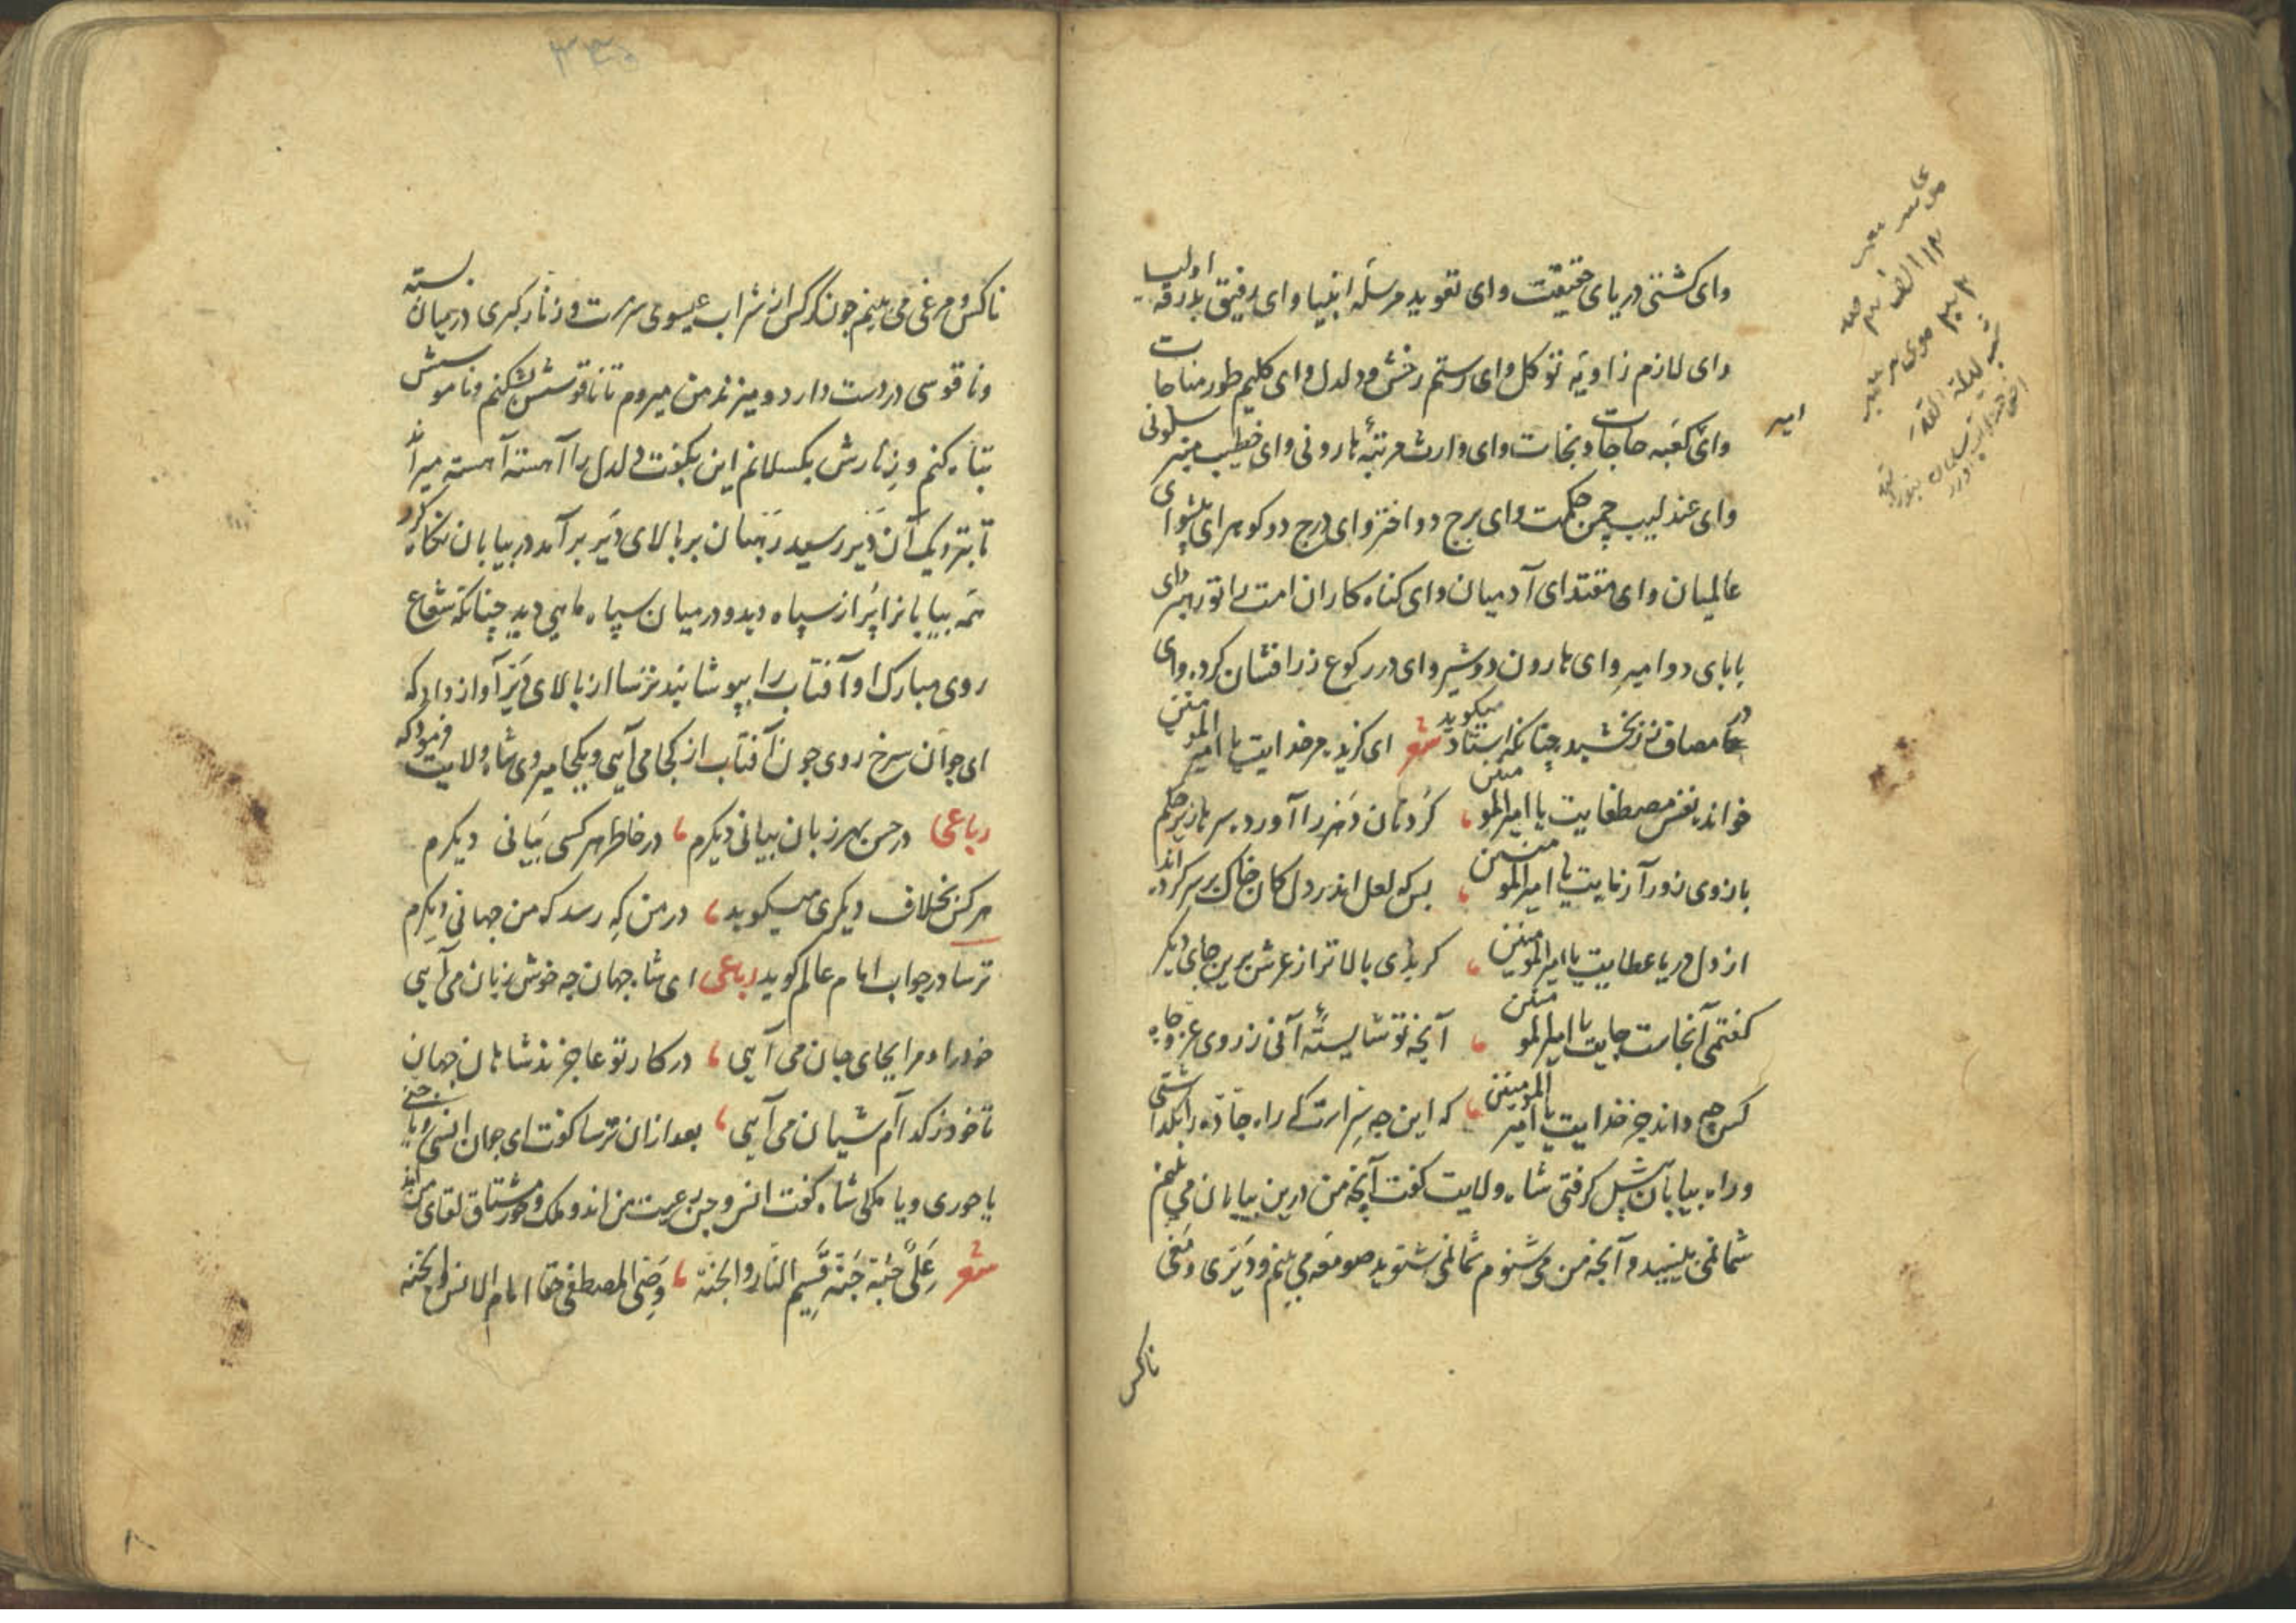 وای کشتی دریای حقیقت وای تعوید مرسله انبیا وای رفیق بدرقه اولیا
وای لازم زاویه توکل وای رستم رخش دلدل وای کلیم طور مناجات
وای کعبه حاجات و نجات وای وارث مرتبهٔ هارونی وای خطیب منبر سلونی
وای عندلیب چمن حکمت وای برج دو اختر وای درج دو کوهر ای پیشوای
عالمیان وای مقتدای آدمیان وای کناه کاران امت را تو رهبر وای
بابای دو امیر وای هارون دو شیر وای در رکوع زر افشان کرده وای
در مصاف سر بخشیده چنانکه استاد میکوید شعر ای کزیده مر خدایت یا امیر المومنین
خوانده نفس مصطفایت یا امیر المومنین کردنان دهر را آورده سرها زیر حکم
بازوی زور آزمایت یا امیر المومنین بس که لعل اندر دل کان خاک بر سر کرده اند
از دل دریا عطایت یا امیر المومنین کر بدی بالاتر از عرش برین جای دیکر
کفتمی آنجاست جایت یا امیر المومنین آنچه تو شایستهٔ آنی ز روی عز و جاه
کس چه داند جز خدایت یا امیر المومنین که این چه سر است که راه جاده را بکذاشتی
و راه بیابان پیش کرفتی شاه ولایت کفت آنچه من درین بیابان می بینم
شما نمی بینید و آنچه من می شنوم شما نمی شنوید صومعه می بینم و دیری و مغی
ناکس
امیر
ناکس و مرغی می بینم چون نرکس از شراب عیسوی سرمست و زنار کبری در میان بسته
و ناقوسی در دست دارد و میزند من میروم تا ناقوسش بشکنم و ناموسش
تباه کنم و زنارش بکسلانم این بکفت و دلدل را آهسته آهسته میراند
تا بنزدیک آن دیر رسید رهبان بر بالای دیر برآمد در بیابان نکاه کرد
همه بیابانرا پر از سپاه دید و در میان سپاه ماهی دید چنانکه شعاع
روی مبارک او آفتاب را بپوشانید ترسا از بالای دیر آواز داد که
ای جوان سرخ روی چون آفتاب از کجا می آیی و بکجا میروی شاه ولایت فرمود که
رباعی در حسن بهر زبان بیانی دیکرم در خاطر هر کسی بیانی دیکرم
هر کس بخلاف دیکری میکوید در من که رسد که من جهانی دیکرم
ترسا در جواب امام عالم کوید رباعی ای شاه جهان چه خوش زبان می آیی
خود را و مرا بجای جان می آیی در کار تو عاجزند شاهان جهان
تا خود ز کدام آشیان می آیی بعد از ان ترسا کفت ای جوان انسی و یا جنی
یا حوری و یا ملکی شاه کفت انس و جن رعیت من اند و ملک و حور مشتاق لقای من اند
شعر علی حبه جنه قسیم النار والجنه وصی المصطفی حقا امام الانس والجنه